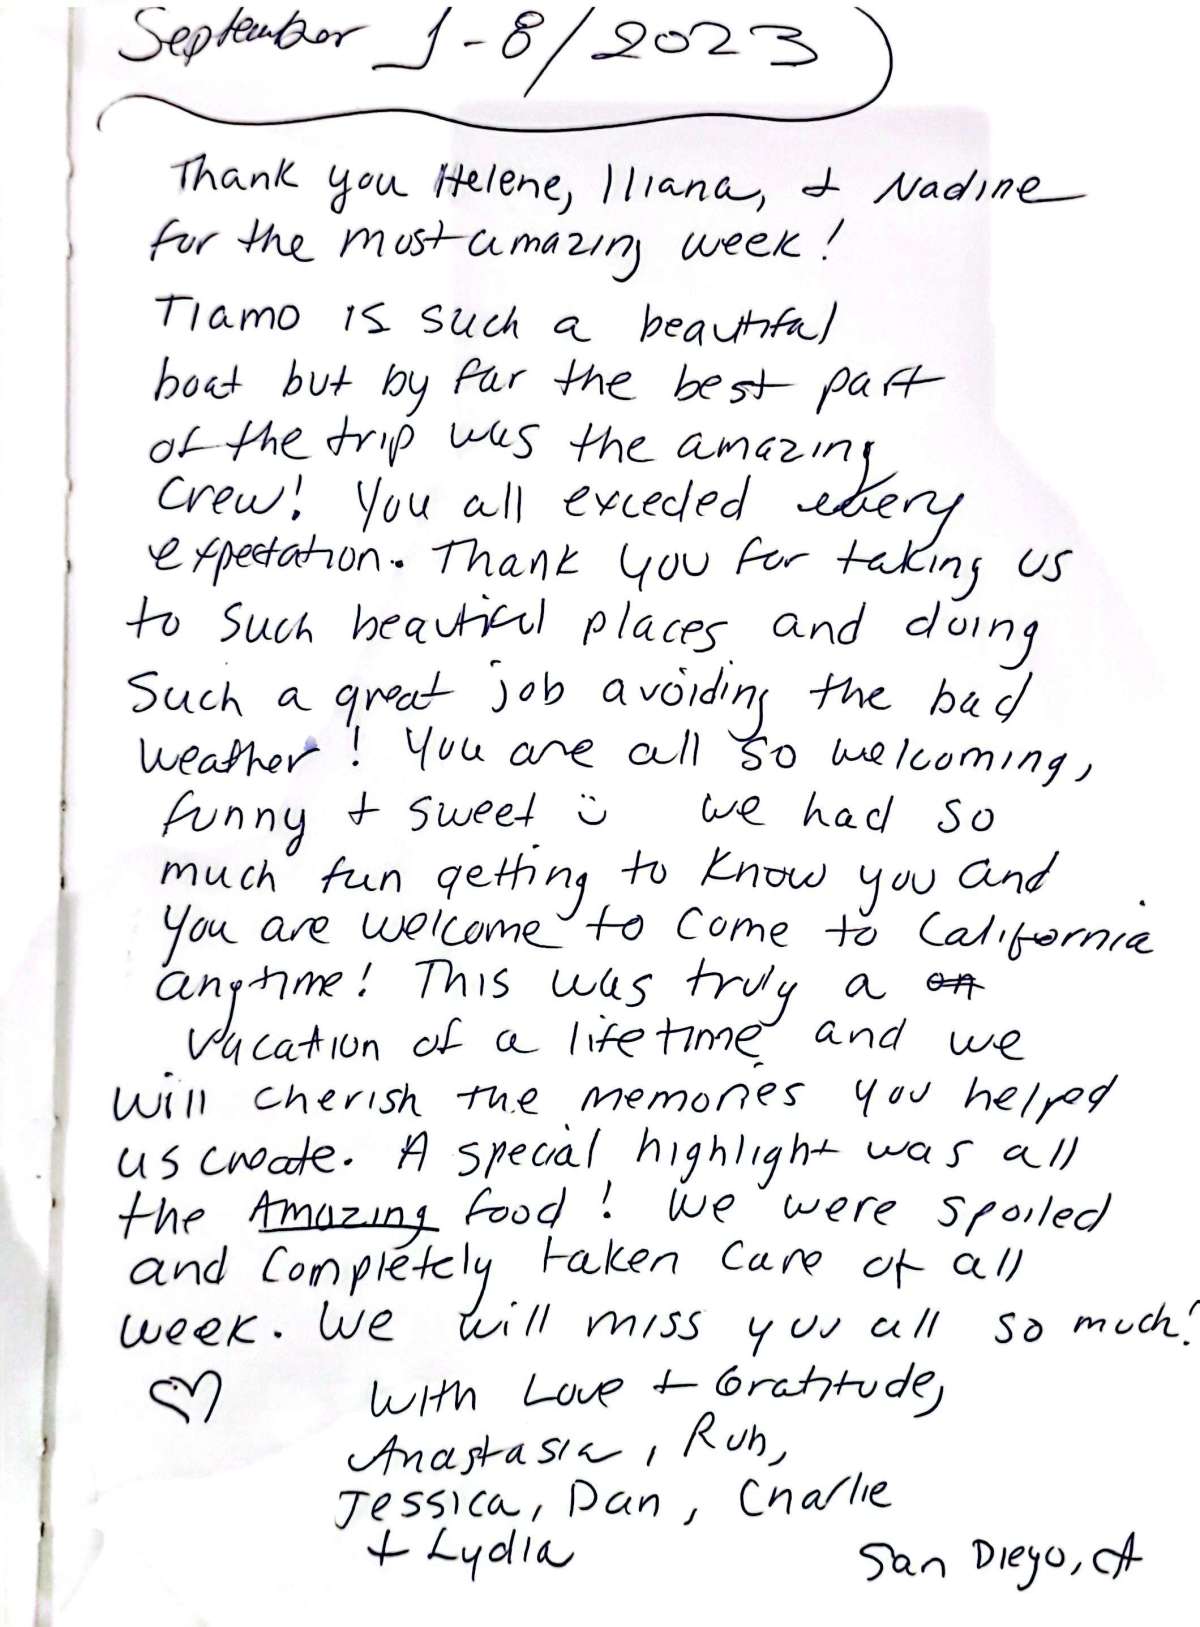 September 1-8/2023
Thank you Helene, Iliana, & Nadine
for the most amazing week!
Tiamo is such a beautiful
boat but by far the best part
of the trip was the amazing
Crew! You all exceded every
expectation. Thank you for taking us
to such beautiful places and doing
such a great job avoiding the bad
weather! You are all so welcoming,
funny + sweet ü we had so
much fun getting to know you and
you are welcome to come to California
anytime! This was truly a
vacation of a lifetime and we
will cherish the memories you helped
us create. A special highlight was all
the Amazing food! We were spoiled
and completely taken care of all
week. We will miss you all so much!
♡ With Love + Gratitude,
Anastasia, Rob,
Jessica, Dan, Charlie
+ Lydia
San Diego, CA